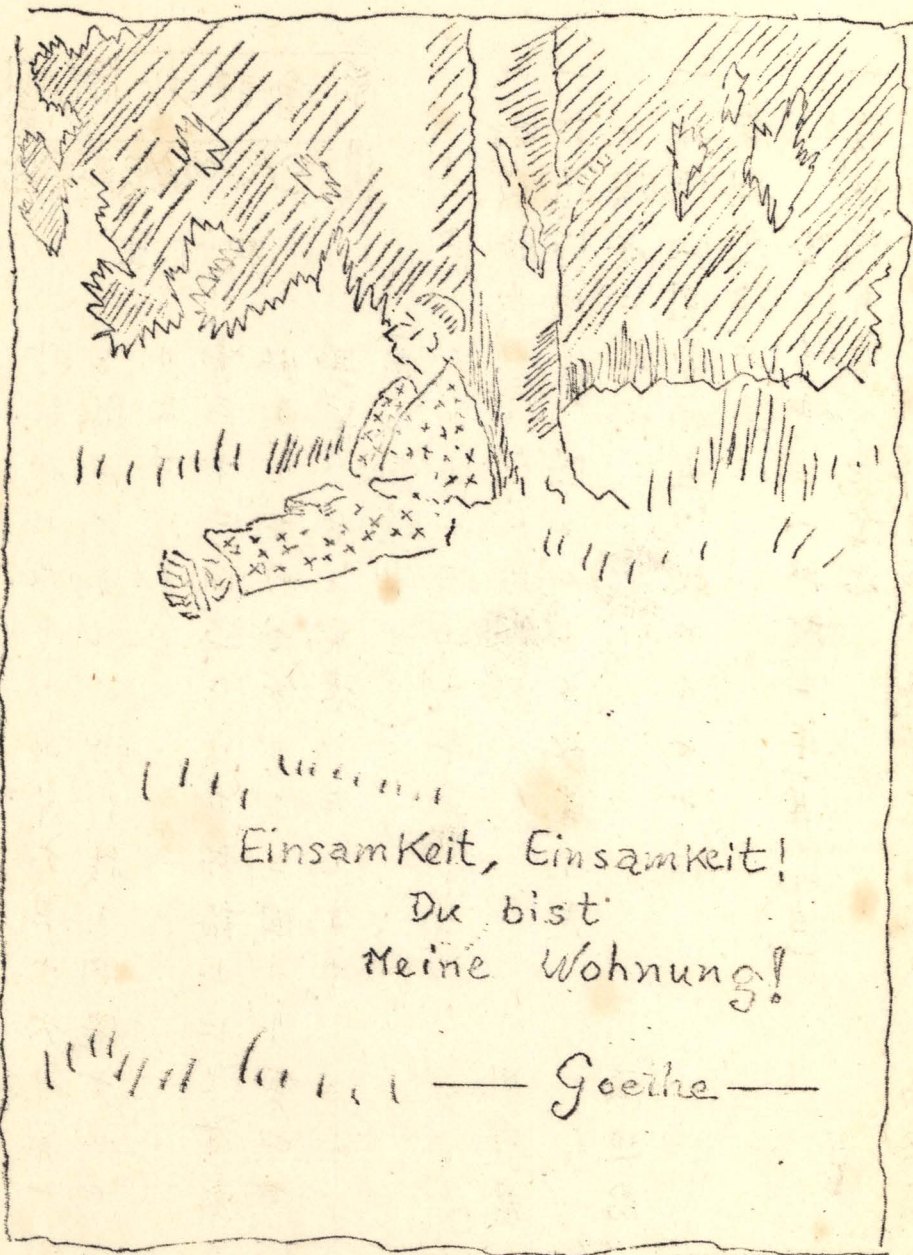 Einsamkeit, Einsamkeit!
Du bist
Meine Wohnung!
— Goethe —